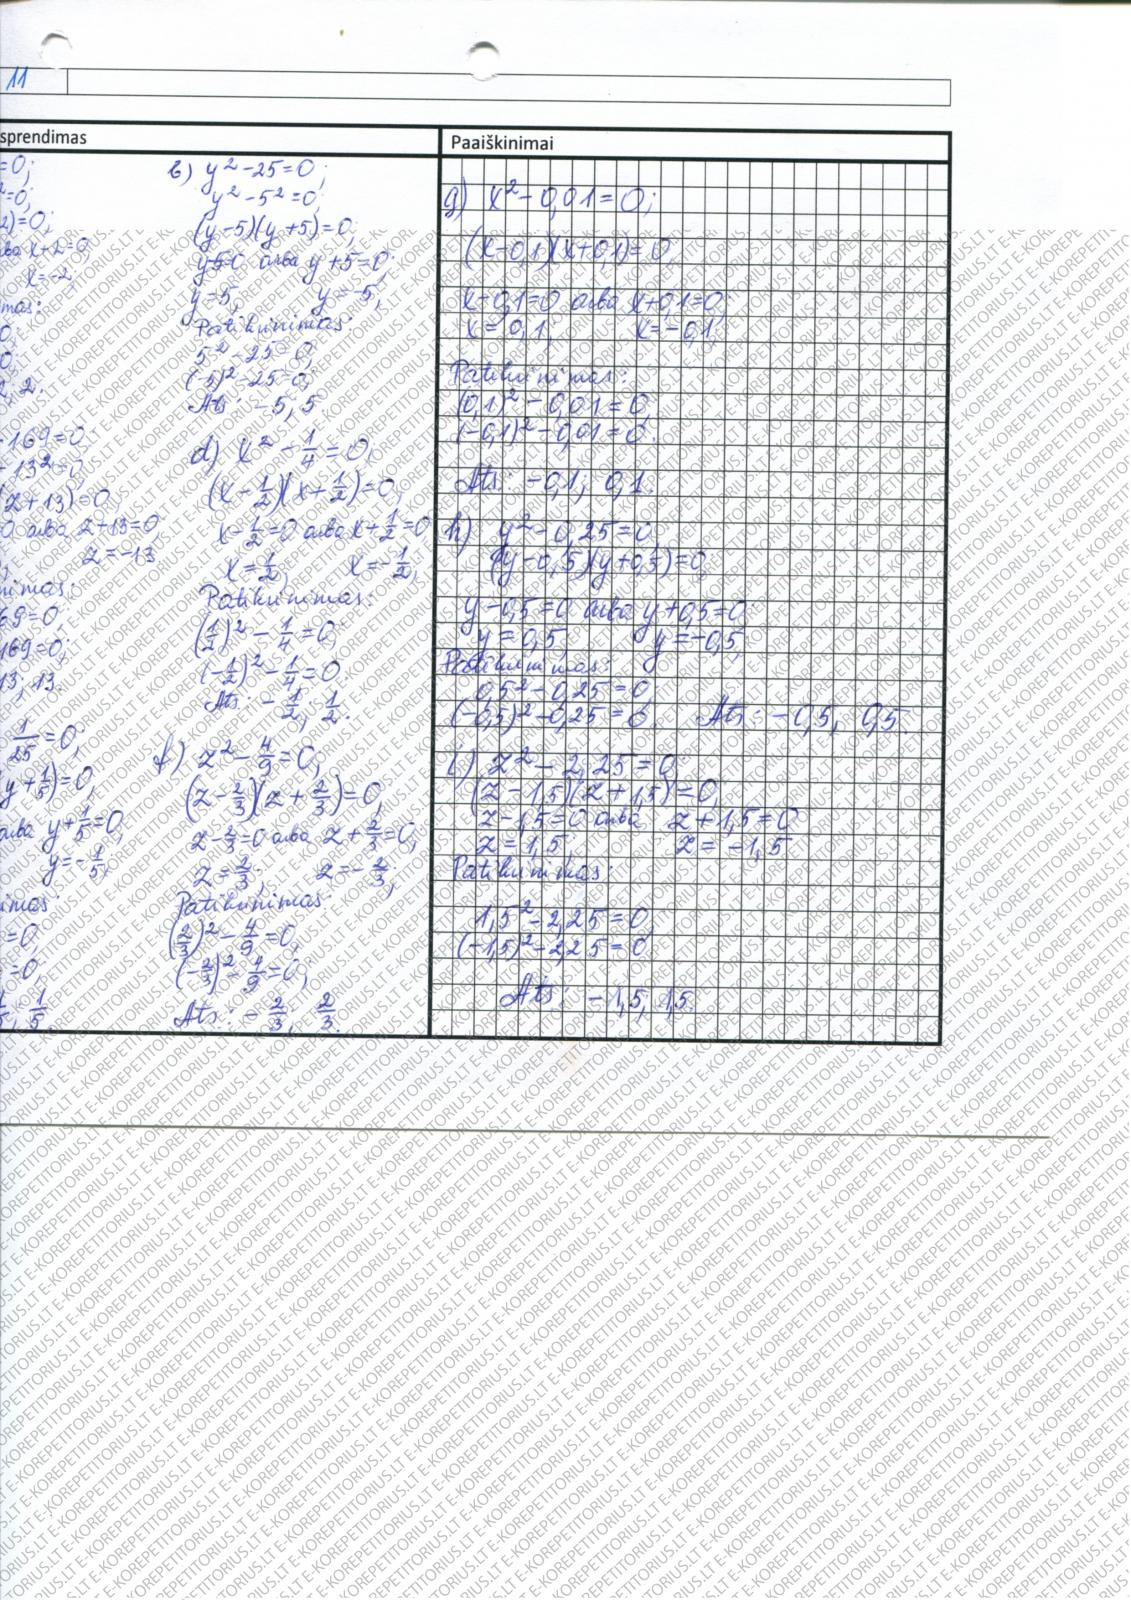 11
sprendimas
=0;
²=0;
2)=0;
arba x+2=0;
x=-2;
mas:
0;
0;
2, 2.
-169=0;
-13²=0
(z+13)=0
0 arba z+13=0;
z=-13
nimas:
69=0;
169=0;
13, 13.
1/25=0;
(y+1/5)=0;
arba y+1/5=0;
y=-1/5;
imas:
=0;
=0
1/5, 1/5.
b) y²-25=0;
y²-5²=0;
(y-5)(y+5)=0;
y-5=0 arba y+5=0;
y=5; y=-5;
Patikrinimas:
5²-25=0;
(-5)²-25=0;
Ats: -5; 5.
d) x²-1/4=0;
(x-1/2)(x+1/2)=0;
x-1/2=0 arba x+1/2=0
x=1/2; x=-1/2;
Patikrinimas:
(1/2)²-1/4=0;
(-1/2)²-1/4=0
Ats: -1/2; 1/2.
f) z²-4/9=0;
(z-2/3)(z+2/3)=0;
z-2/3=0 arba z+2/3=0;
z=2/3; z=-2/3;
Patikrinimas:
(2/3)²-4/9=0;
(-2/3)²-4/9=0;
Ats.: -2/3; 2/3.
Paaiškinimai
g) x²-0,01=0;
(x-0,1)(x+0,1)=0;
x-0,1=0 arba x+0,1=0;
x=0,1; x=-0,1;
Patikrinimas:
(0,1)²-0,01=0;
(-0,1)²-0,01=0.
Ats: -0,1; 0,1.
h) y²-0,25=0
(y-0,5)(y+0,5)=0;
y-0,5=0 arba y+0,5=0;
y=0,5; y=-0,5;
Patikrinimas:
0,5²-0,25=0
(-0,5)²-0,25=0 Ats: -0,5; 0,5.
i) z²-2,25=0
(z-1,5)(z+1,5)=0;
z-1,5=0 arba z+1,5=0
z=1,5; z=-1,5
Patikrinimas:
1,5²-2,25=0;
(-1,5)²-2,25=0
Ats: -1,5; 1,5.
E-KOREPETITORIUS.LT